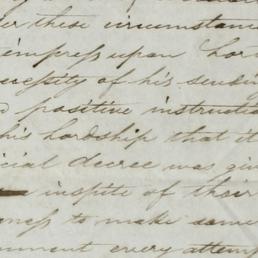 these circumstanc
impress upon Lor
necessity of his sendi
positive instructi
his lordship that it
icial decree was giv
inspite of their
ness to make some
every attemp